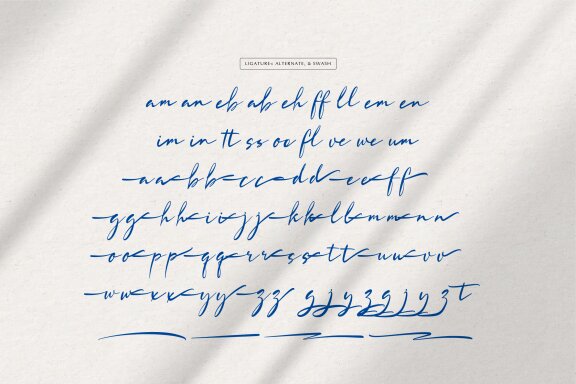 LIGATURES ALTERNATE, & SWASH
am an eb ab eh ff ll em en
im in tt ss oo fl ve we um
aa bb cc dd ee ff
gg hh ii jj kk ll mm nn
oo pp qq rr ss tt uu vv
ww xx yy zz g j y z g j y z t